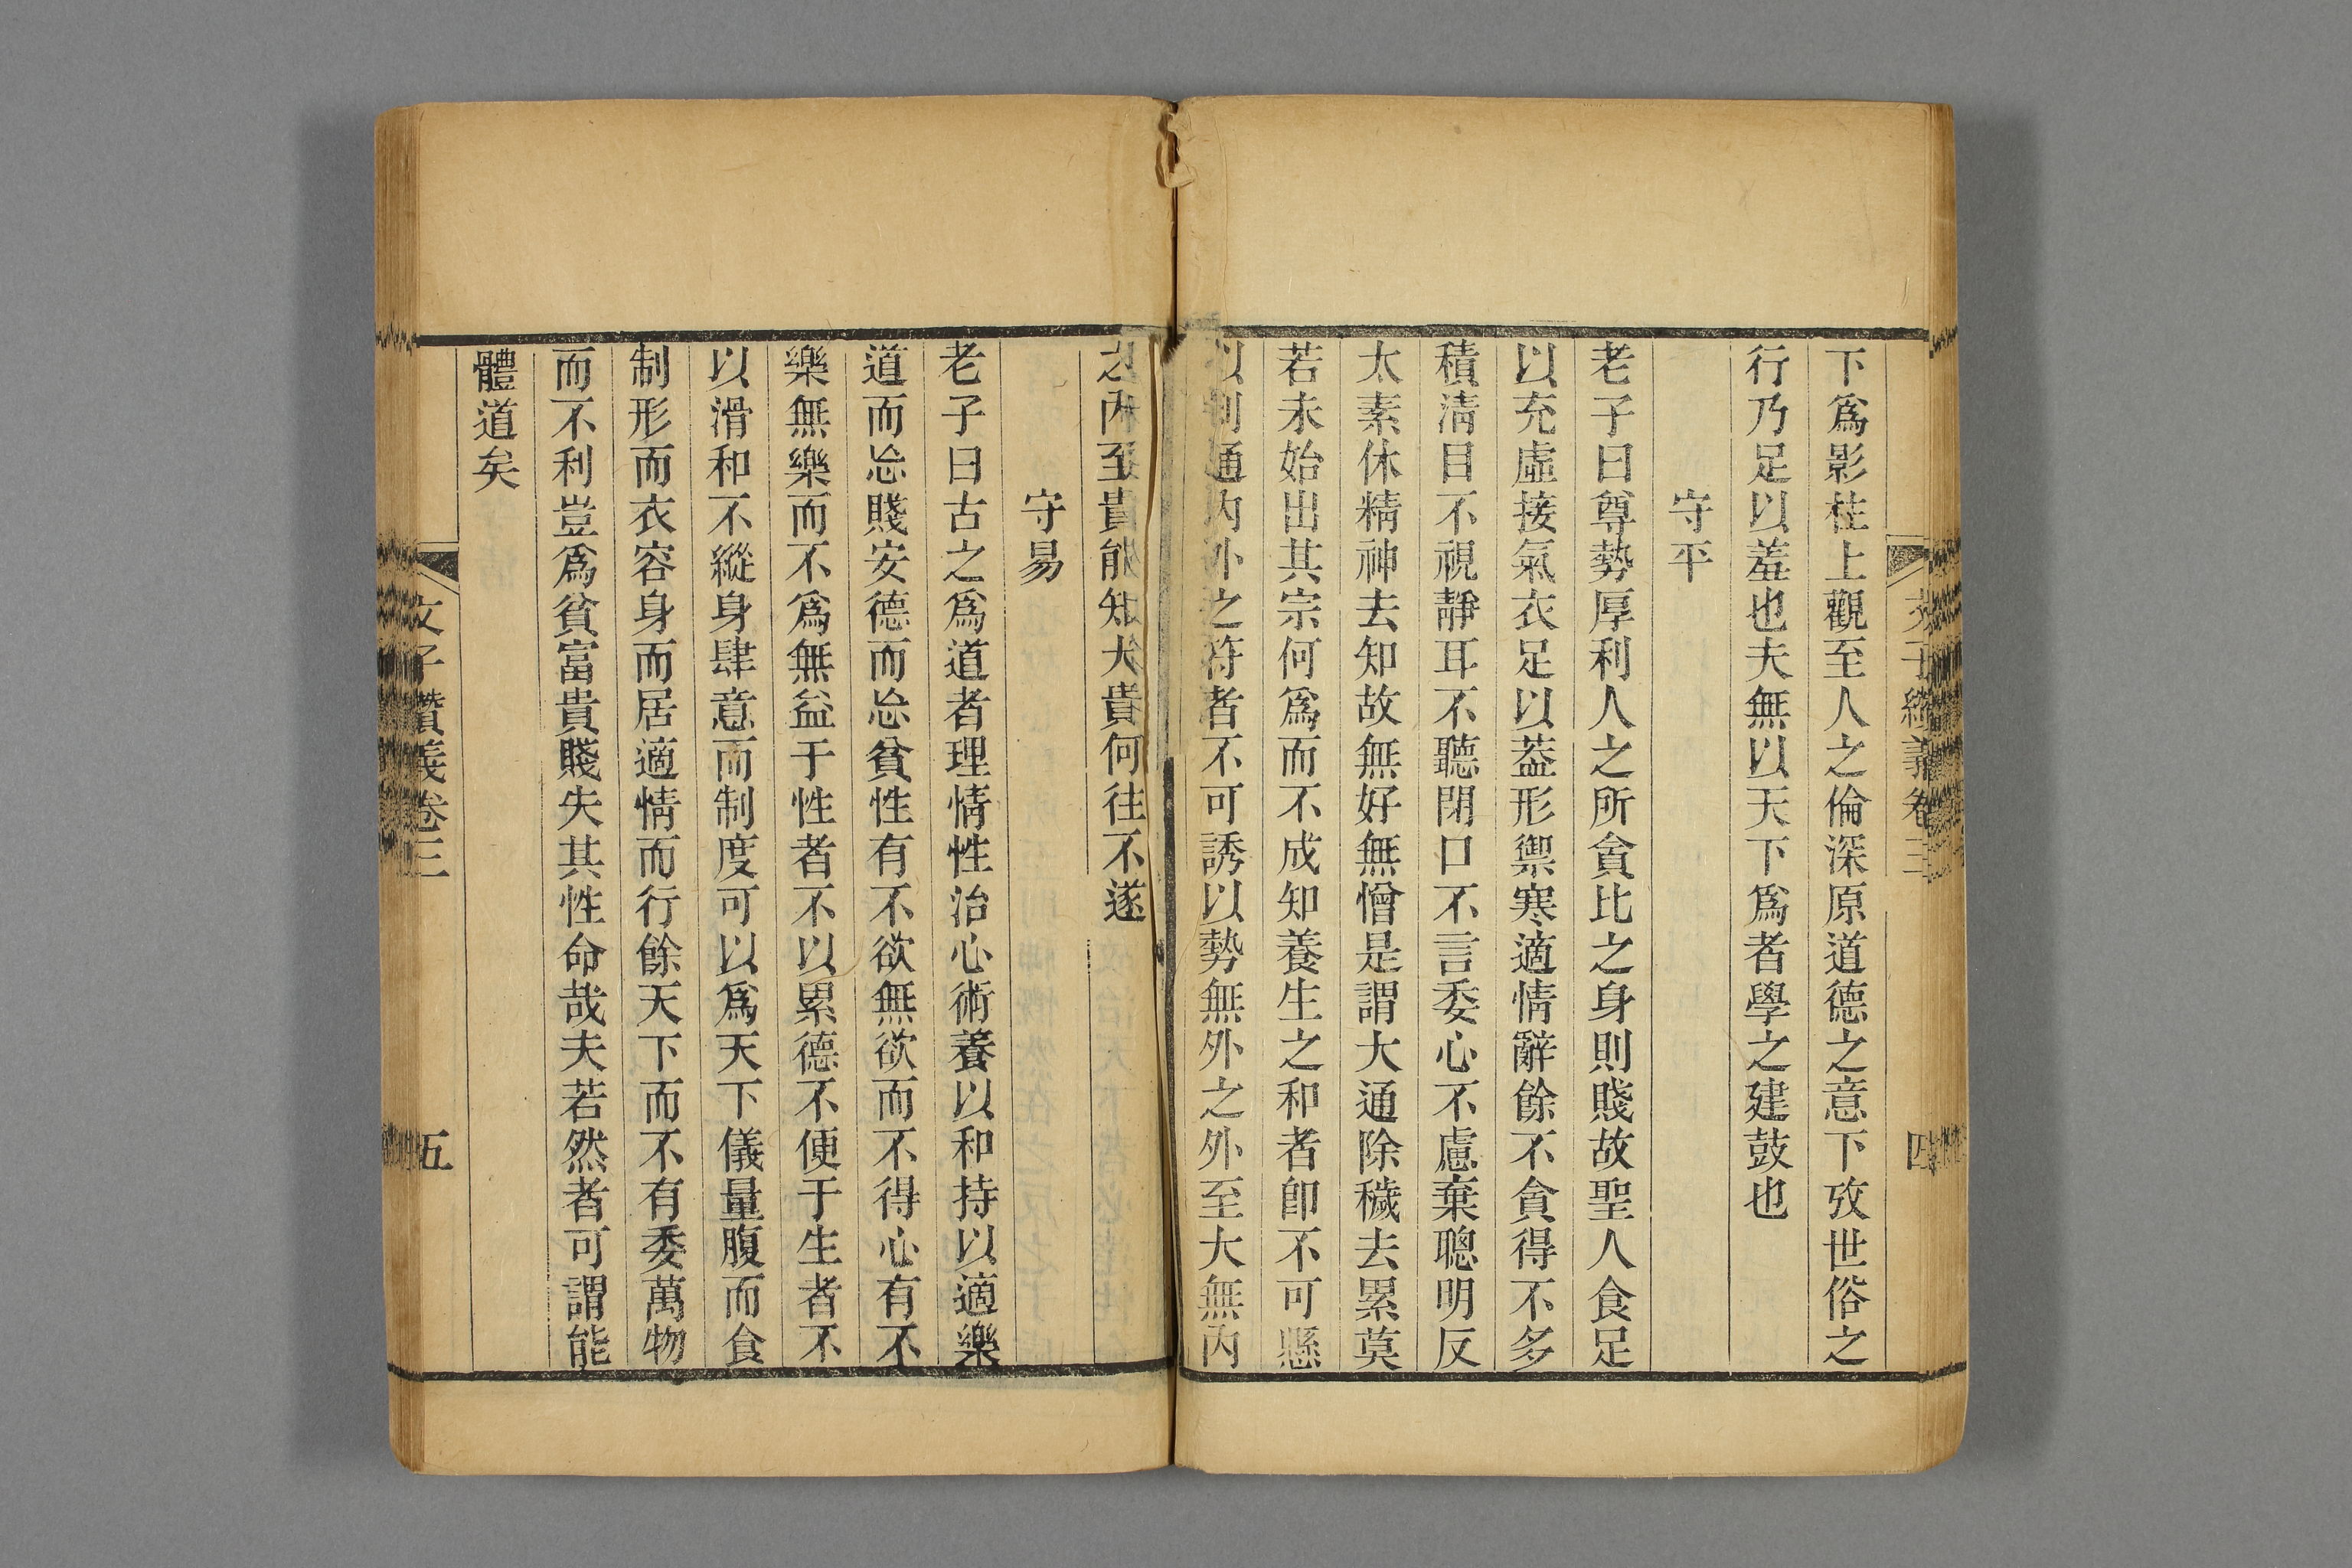 下爲影柱上觀至人之倫深原道德之意下攷世俗之
行乃足以羞也夫無以天下爲者學之建鼓也
守平
老子曰尊勢厚利人之所貪比之身則賤故聖人食足
以充虛接氣衣足以葢形禦寒適情辭餘不貪得不多
積淸目不視靜耳不聽閉口不言委心不慮棄聰明反
太素休精神去知故無好無憎是謂大通除穢去累莫
若未始出其宗何爲而不成知養生之和者卽不可懸
以利通內外之符者不可誘以勢無外之外至大無內
之內至貴能知大貴何往不遂
守易
老子曰古之爲道者理情性治心術養以和持以適樂
道而忘賤安德而忘貧性有不欲無欲而不得心有不
樂無樂而不爲無益于性者不以累德不便于生者不
以滑和不縱身肆意而制度可以爲天下儀量腹而食
制形而衣容身而居適情而行餘天下而不有委萬物
而不利豈爲貧富貴賤失其性命哉夫若然者可謂能
體道矣
文子纘義卷三
五
文子纘義卷三
四